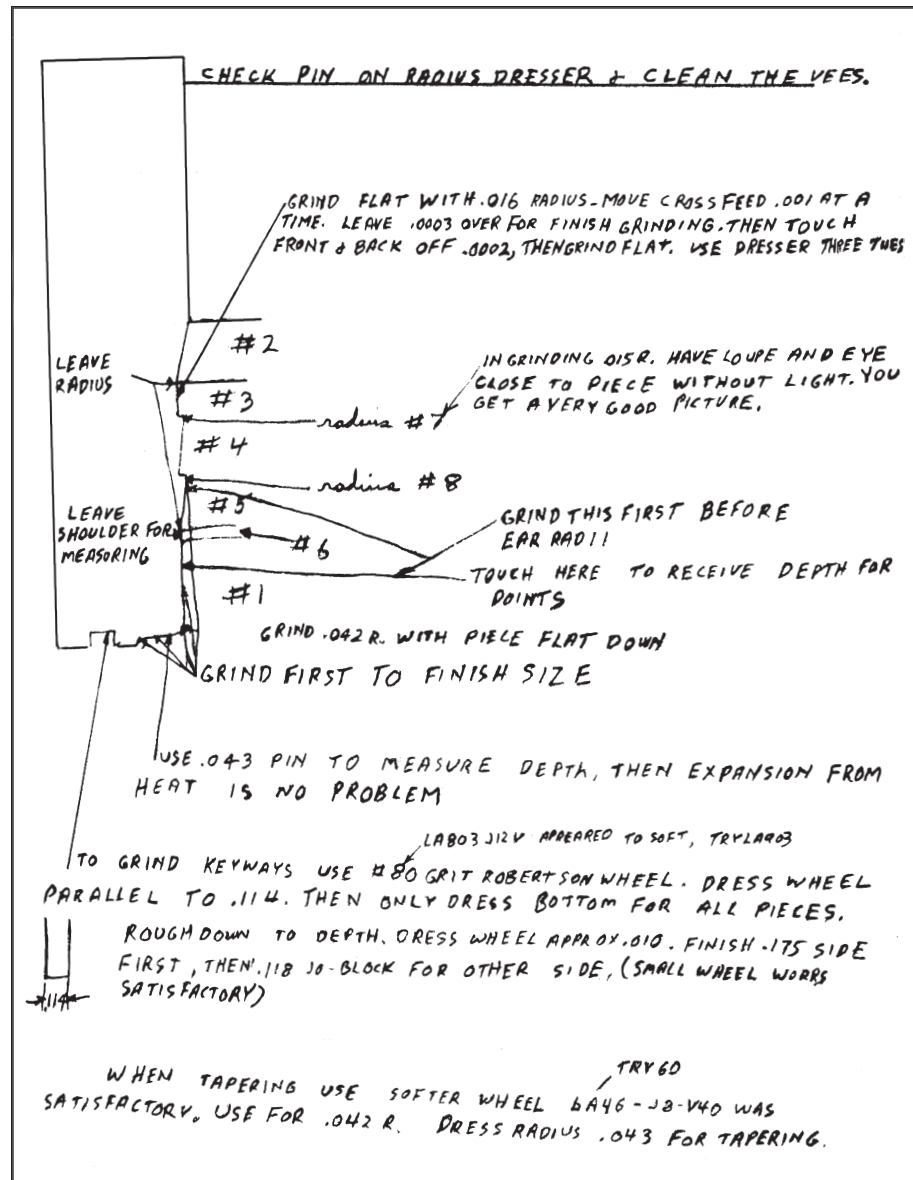 CHECK PIN ON RADIUS DRESSER & CLEAN THE VEES.
GRIND FLAT WITH .016 RADIUS - MOVE CROSSFEED .001 AT A
TIME. LEAVE .0003 OVER FOR FINISH GRINDING. THEN TOUCH
FRONT & BACK OFF .0002, THEN GRIND FLAT. USE DRESSER THREE
#2
LEAVE
RADIUS
#3
IN GRINDING .015R. HAVE LOUPE AND EYE
CLOSE TO PIECE WITHOUT LIGHT. YOU
GET A VERY GOOD PICTURE.
radius # 7
#4
radius # 8
#5
LEAVE
SHOULDER FOR
MEASURING
#6
GRIND THIS FIRST BEFORE
EAR RADII
TOUCH HERE TO RECEIVE DEPTH FOR
POINTS
#1
GRIND .042 R. WITH PIECE FLAT DOWN
GRIND FIRST TO FINISH SIZE
USE .043 PIN TO MEASURE DEPTH, THEN EXPANSION FROM
HEAT IS NO PROBLEM
LA803 J12V APPEARED TO SOFT, TRY LA903
TO GRIND KEYWAYS USE #80 GRIT ROBERTSON WHEEL. DRESS WHEEL
PARALLEL TO .114. THEN ONLY DRESS BOTTOM FOR ALL PIECES.
ROUGH DOWN TO DEPTH. DRESS WHEEL APPROX .010. FINISH .175 SIDE
FIRST, THEN .118 JO-BLOCK FOR OTHER SIDE, (SMALL WHEEL WORKS
SATISFACTORY)
.114
TRY 60
WHEN TAPERING USE SOFTER WHEEL 6A46-J8-V40 WAS
SATISFACTORY. USE FOR .042 R. DRESS RADIUS .043 FOR TAPERING.